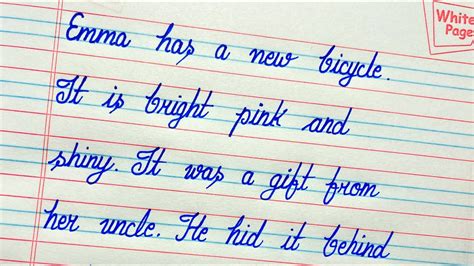 White
Pages
Emma has a new bicycle.
It is bright pink and
shiny. It was a gift from
her uncle. He hid it behind